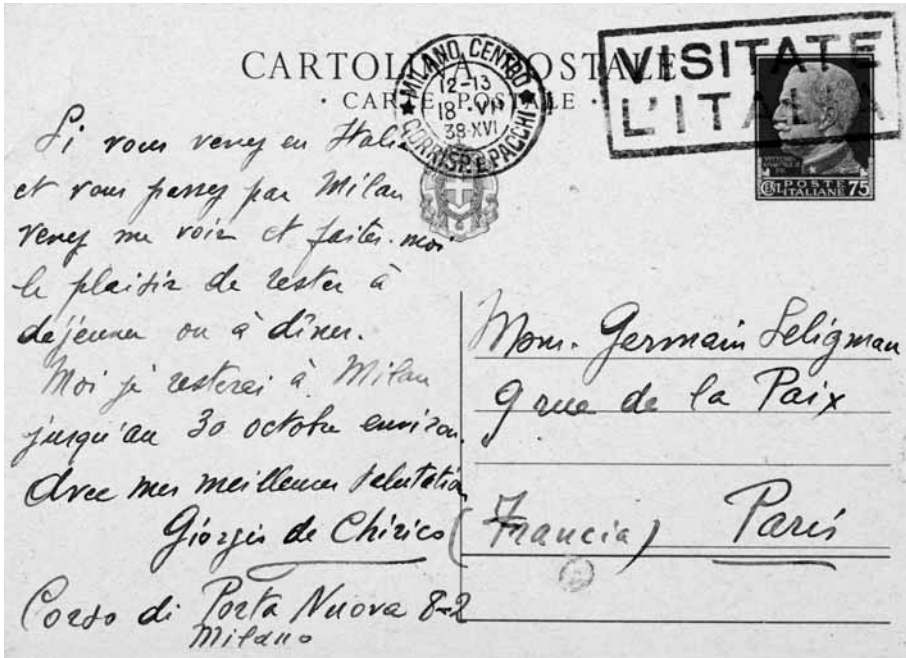 CARTOLINA POSTALE
· CARTE POSTALE ·
MILANO CENTRO
12-13
18 VII
38·XVI
CORRISP. E PACCHI
VISITATE
L'ITALIA
POSTE
ITALIANE
75
Si vous venez en Italie
et vous passez par Milan
venez me voir et faites-moi
le plaisir de rester à
déjeuner ou à dîner.
Moi je resterai à Milan
jusqu'au 30 octobre environ.
Avec mes meilleures salutations
Giorgio de Chirico
Corso di Porta Nuova 8-2
Milano
Mons. Germain Seligman
9 rue de la Paix
(Francia) Paris